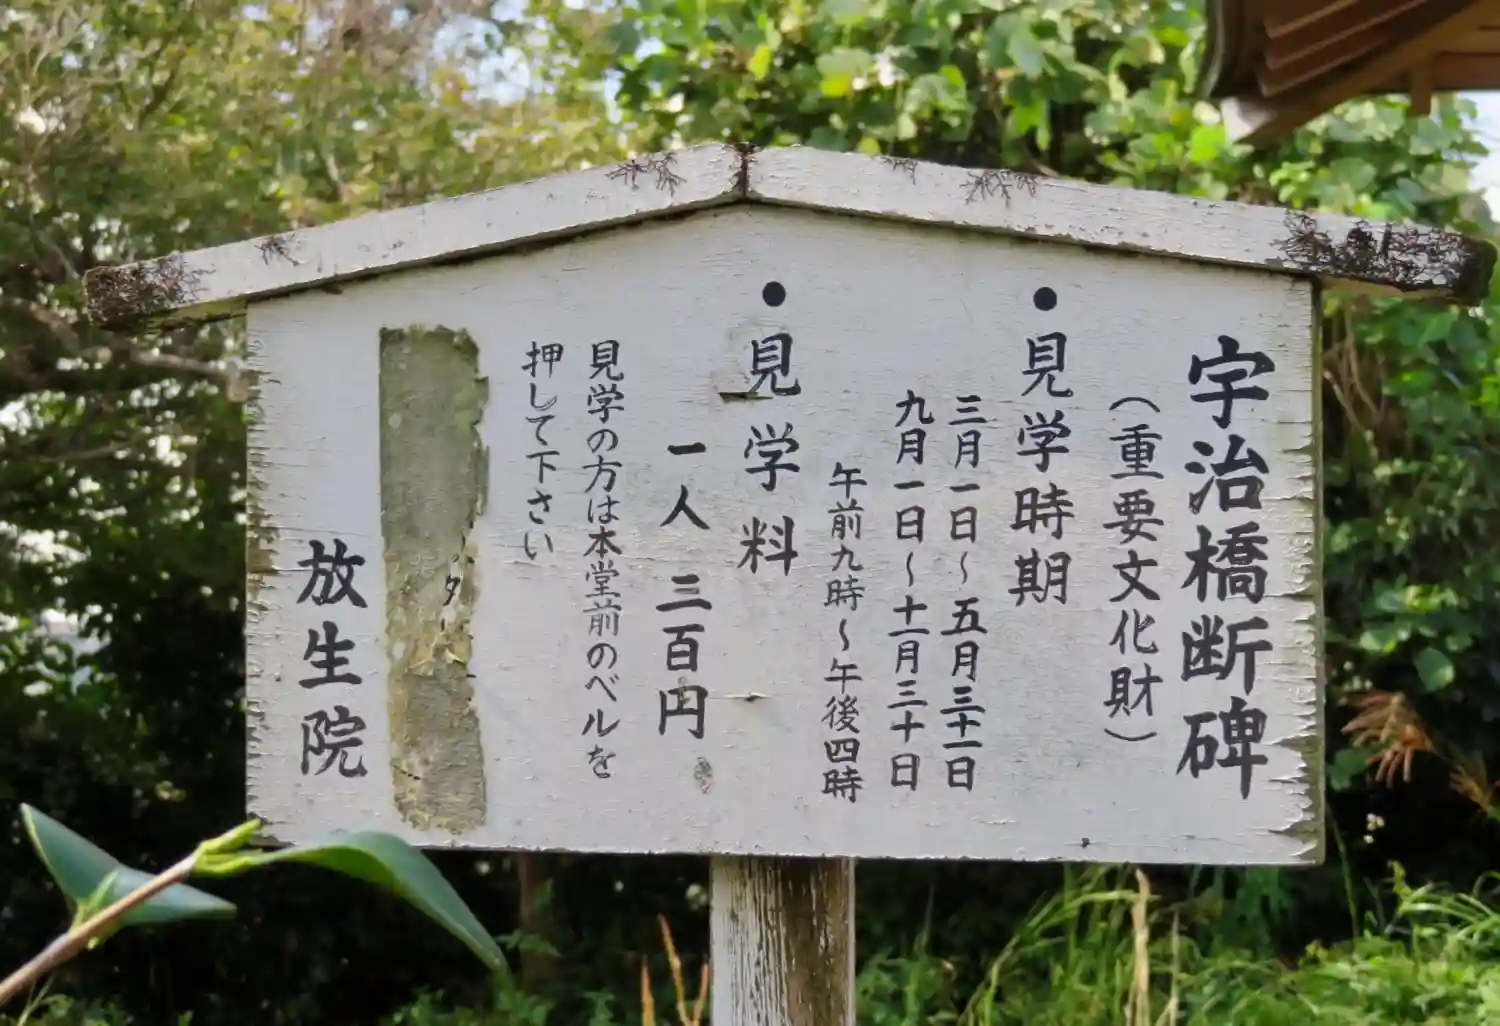 宇治橋断碑
（重要文化財）
●見学時期
三月一日～五月三十一日
九月一日～十一月三十日
午前九時～午後四時
●見学料
一人 三百円
見学の方は本堂前のベルを
押して下さい
放生院